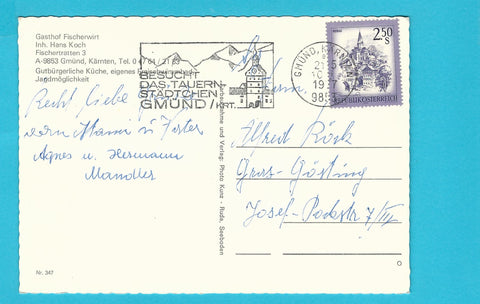 Gasthof Fischerwirt
Inh. Hans Koch
Fischertratten 3
A-9853 Gmünd, Kärnten, Tel. 0 47 61 / 21 63
Gutbürgerliche Küche, eigenes
Jagdmöglichkeit
BESUCHT
DAS TAUERN
STÄDTCHEN
GMÜND/KRT.
GMÜND,
9853
2.50 S
REPUBLIK ÖSTERREICH
Recht liebe
Agnes u. Hermann
Mandler
Alfred Röck
Graz-Gösting
Josef-Pock
Aufnahme und Verlag: Photo Kunz - Ruda, Seeboden
Nr. 347